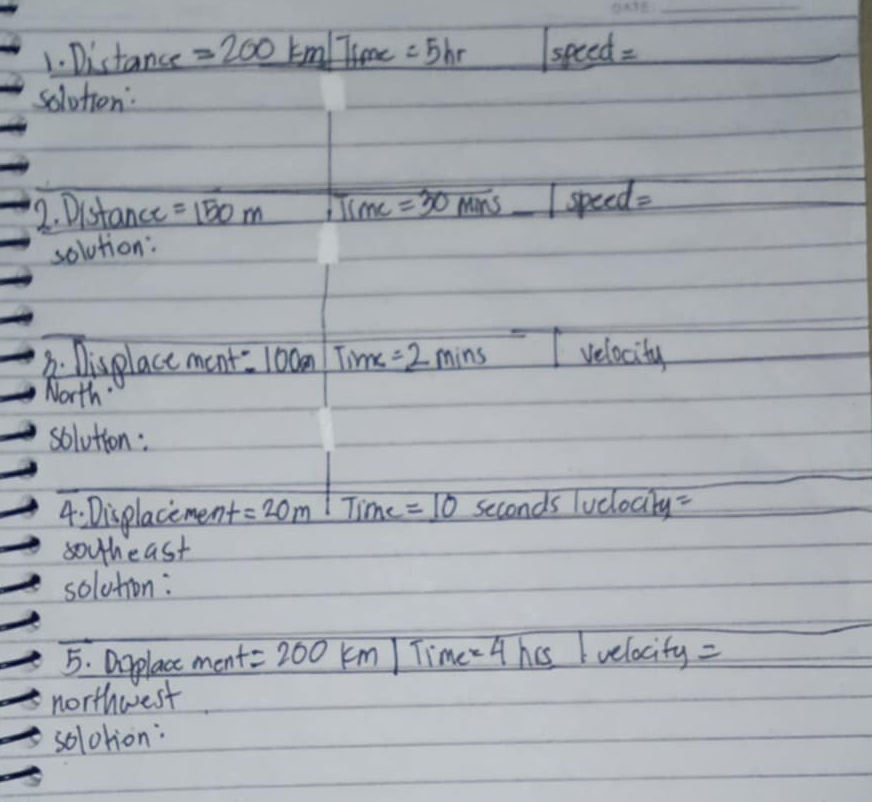 DATE:
1. Distance = 200 km | Time = 5hr | speed =
solution:
2. Distance = 150 m | Time = 30 mins | speed =
solution:
3. Displacement = 100m | Time = 2 mins | velocity
North.
solution:
4. Displacement = 20m | Time = 10 seconds | velocity =
southeast
solution:
5. Displacement = 200 km | Time = 4 hrs | velocity =
northwest
solution: